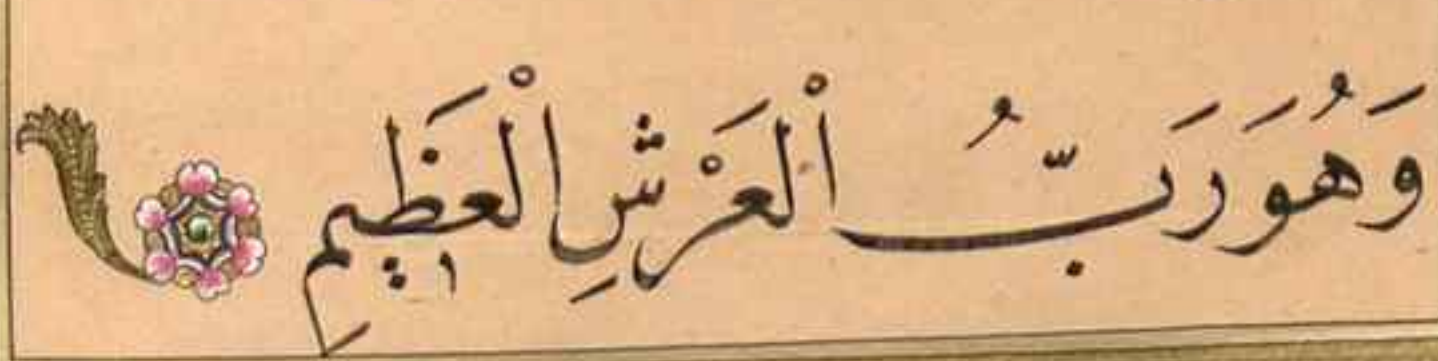 وَهُوَ رَبُّ الْعَرْشِ الْعَظِيمِ